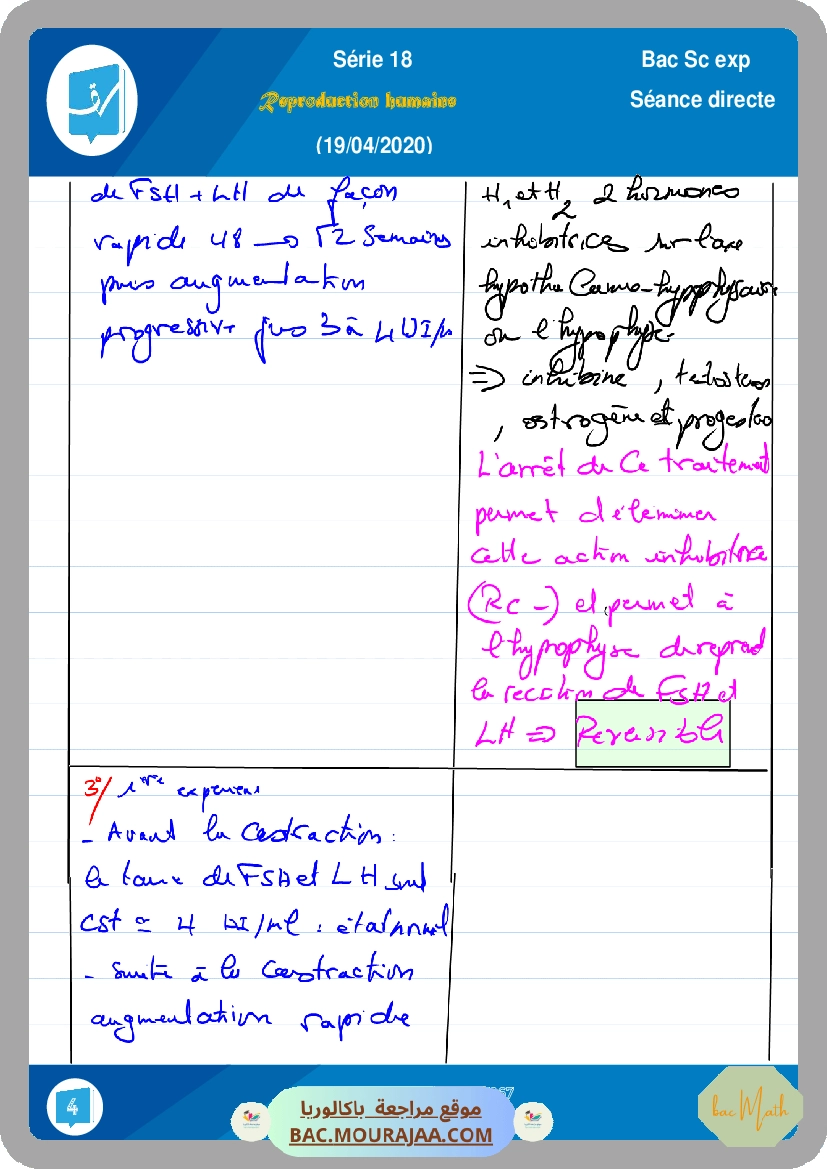 Série 18
Bac Sc exp
Reproduction humaine
Séance directe
(19/04/2020)
de FSH + LH de façon
rapide 48 → 52 Semaines
puis augmentation
progressive jus 3 à 4 UI/
H1 et H2 2 hormones
inhibitrices sur l'axe
hypothalamo-hypophysaire
ou l'hypophyse
⇒ inhibine, testoster
, œstrogène et progeste
L'arrêt de ce traitement
permet d'éleminer
cette action inhibitrice
(RC -) et permet à
l'hypophyse de reprend
la secretion de FSH et
LH ⇒ Reversible
3°/ 1ère experien
- Avant la Castraction :
le taux de FSH et LH sont
Cst ≃ 4 UI/ml : état normal
- Suite à la Castraction
augmentation rapide
4
موقع مراجعة باكالوريا
BAC.MOURAJAA.COM
bac Math